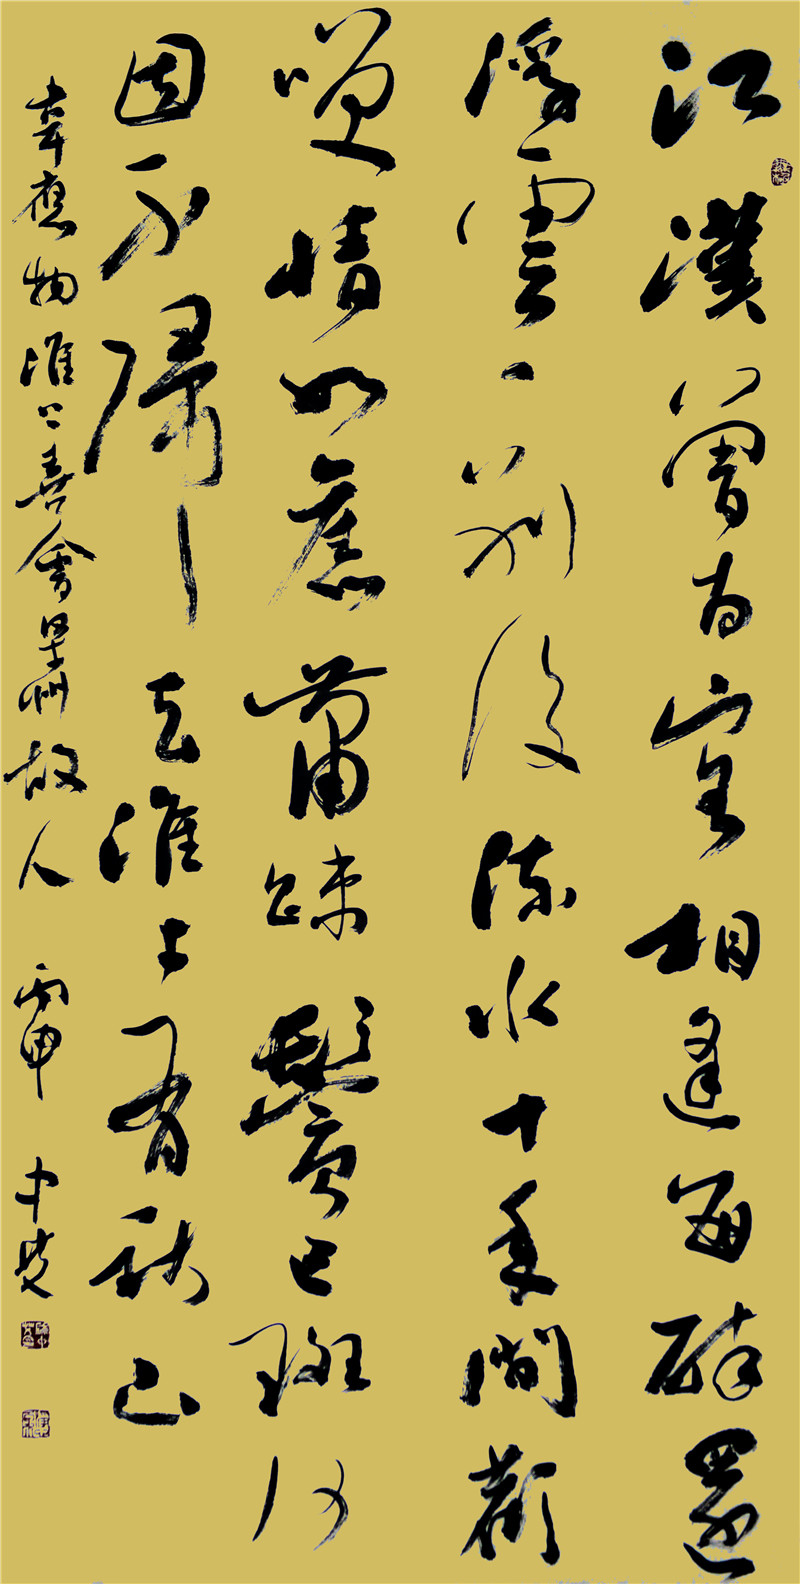 江漢曾為客相逢每醉還
浮雲一別後流水十年間歡
咲情如舊蕭疎鬢已斑何
因不歸去淮上有秋山
韋應物淮上喜會梁州故人 丙申 中